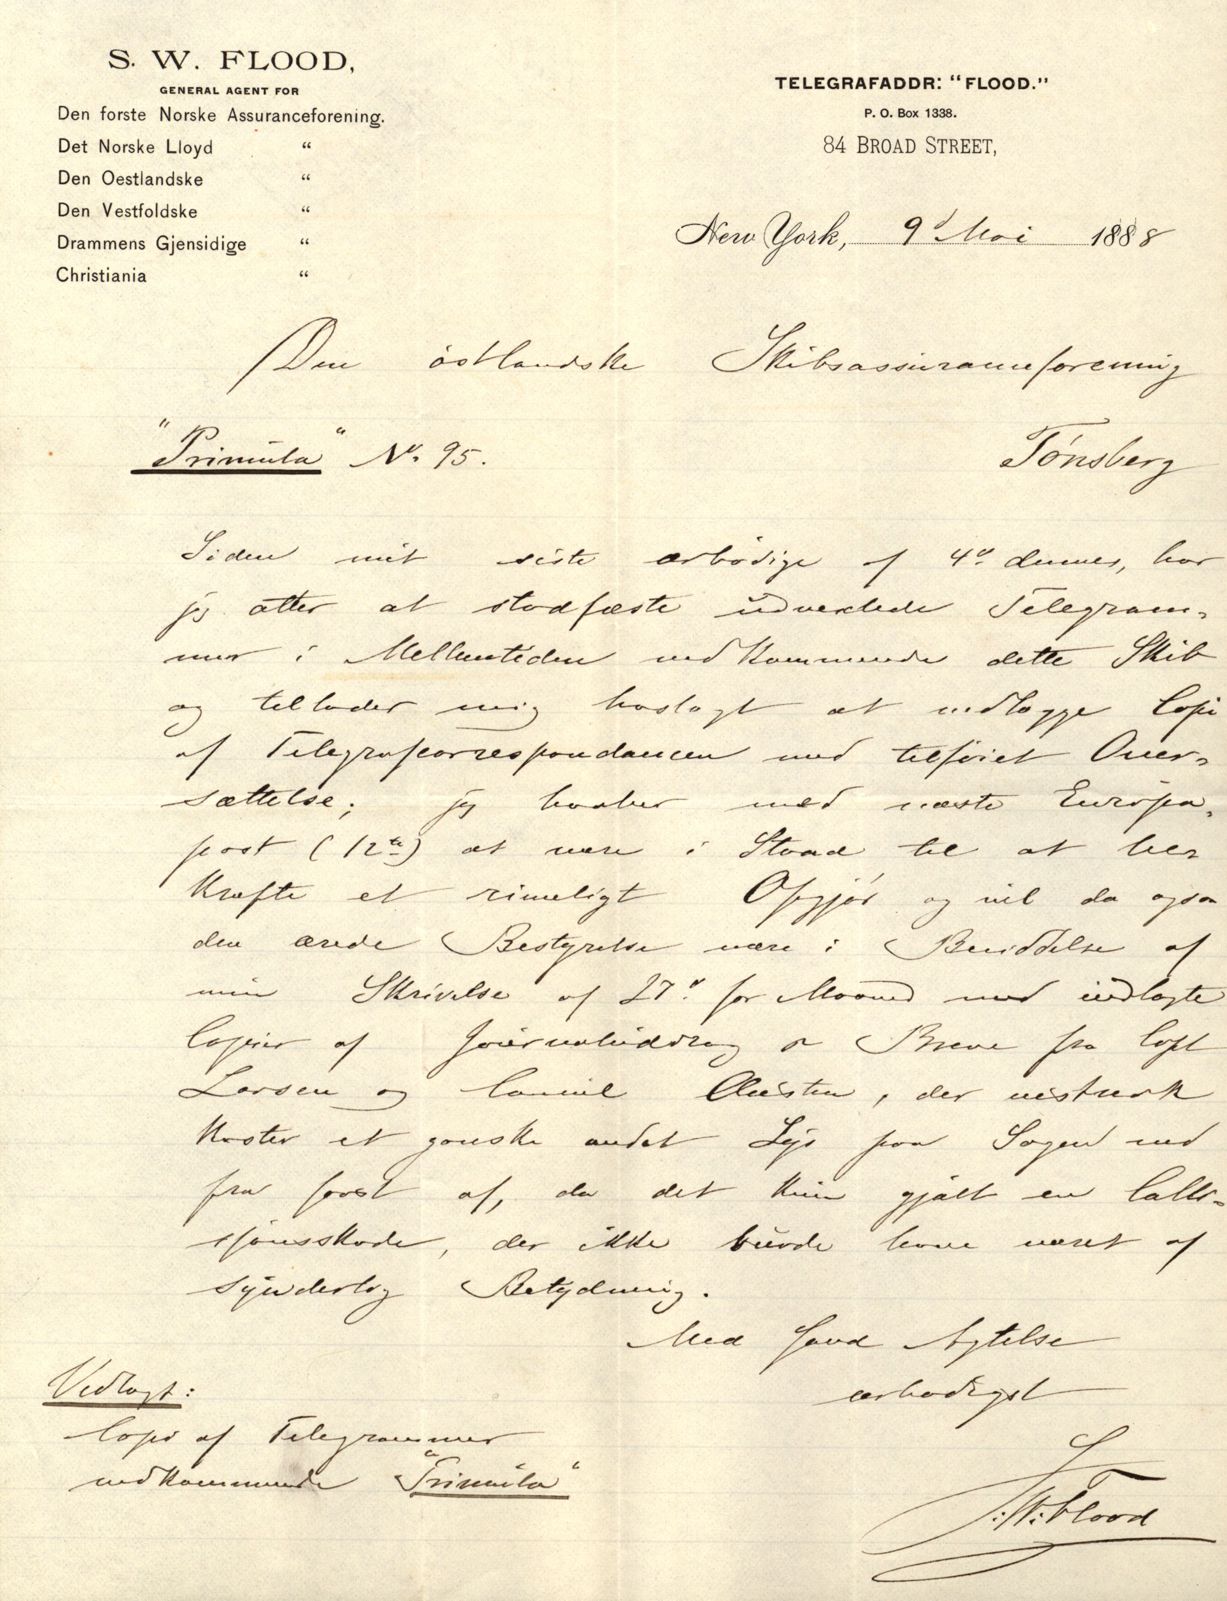 S. W. FLOOD,
GENERAL AGENT FOR
Den forste Norske Assuranceforening.
Det Norske Lloyd "
Den Oestlandske "
Den Vestfoldske "
Drammens Gjensidige "
Christiania "
TELEGRAFADDR: "FLOOD."
P. O. Box 1338.
84 BROAD STREET,
New York, 9d Mai 1888
Den östlandske Skibsassuranceforening
Tönsberg
"Primula" No. 95.
Siden mit siste ærbödige af 4d dennes, har
jeg atter at stadfæste udvexlede Telegram-
mer i Mellemtiden vedkommende dette Skib
og tillader mig hoslagt at vedlægge Copi
af Telegrafcorrespondancen med tilföiet Over-
sættelse; jeg haaber med næste Europa-
post (12te) at være i Stand til at be-
kræfte et rimeligt Opgjör og vil da ogsaa
den ærede Bestyrelse være i Besiddelse af
min Skrivelse af 27d for Maaned med indlagte
Copier af Journaludrag & Breve fra Capt
Larsen og Consul, der
kaster et ganske andet Lys paa Sagen end
fra först af, da det kun gjalt en Colli-
sjonsskade, der ikke burde have været af
synderlig Betydning.
Med Agtelse
ærbödigst
S. W. Flood
Vedlagt:
Copi af Telegrammer
vedkommende "Primula"